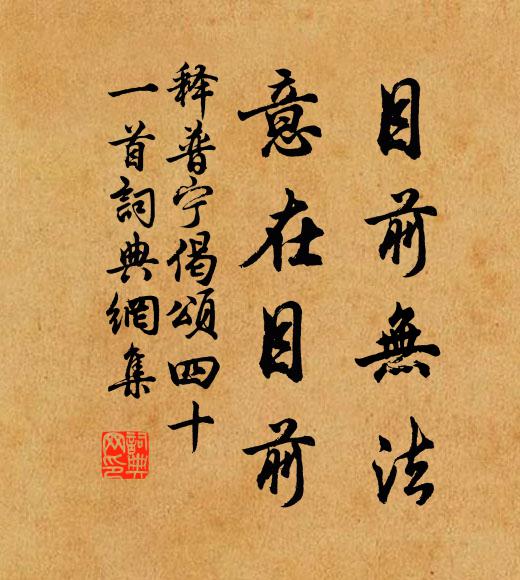 目前無法
意在目前
释普宁偈頌四十
一首詞典網集
詞典網印